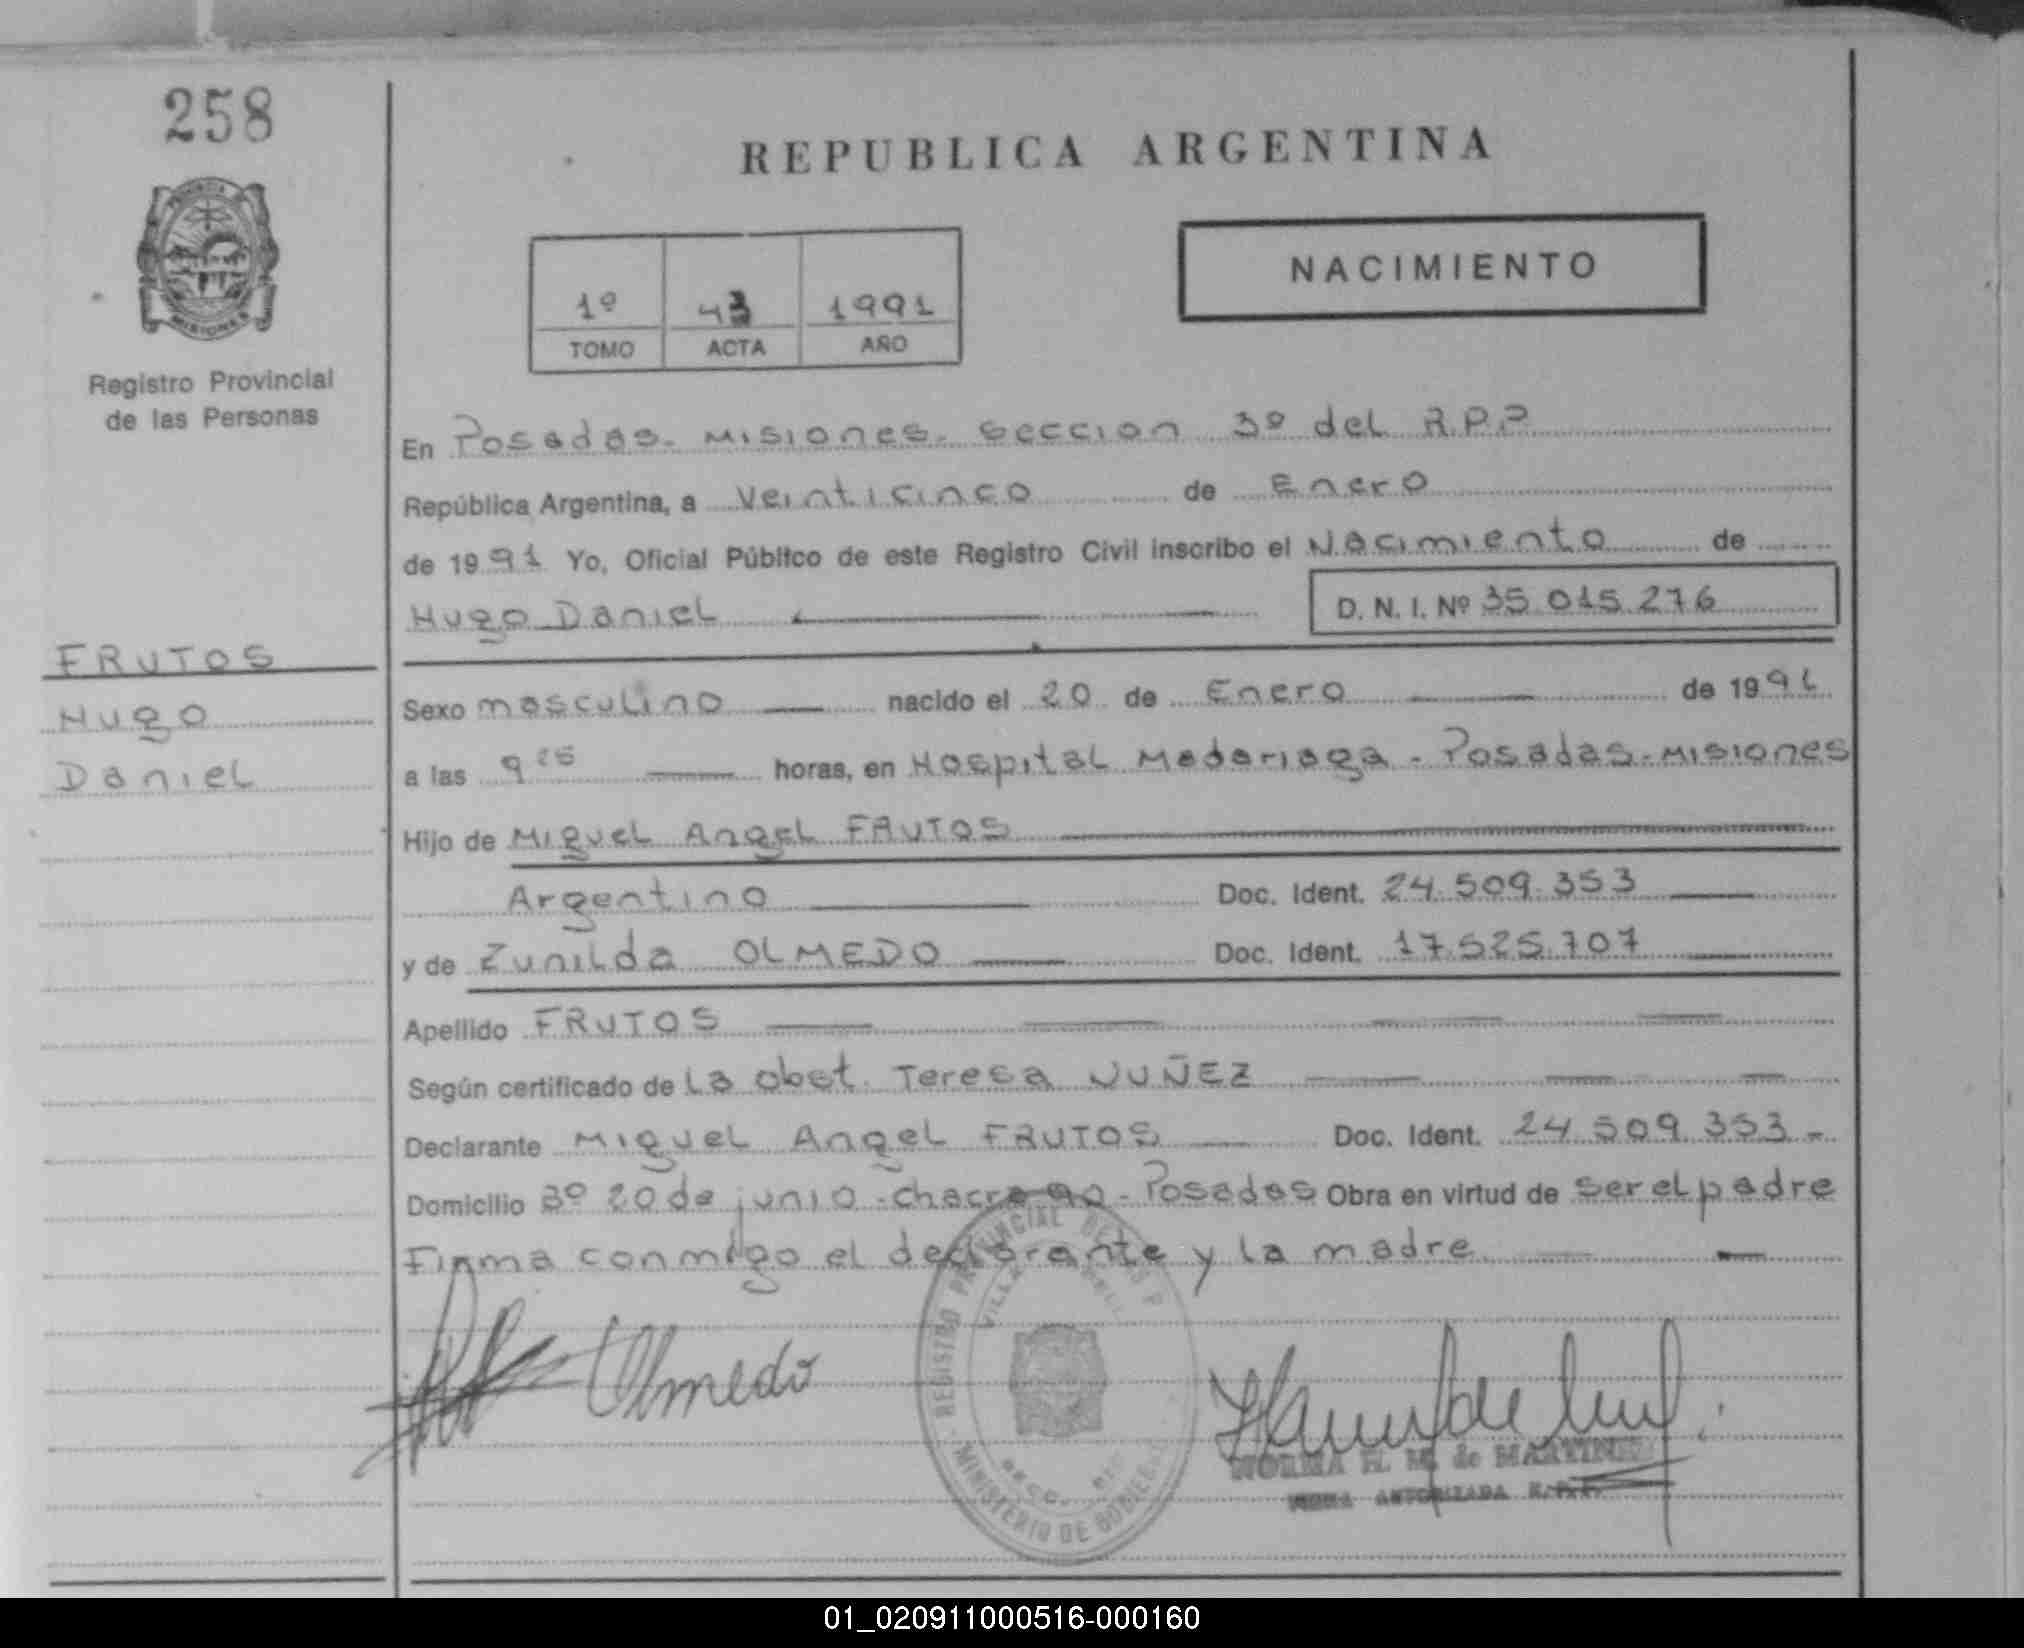 258
REPUBLICA ARGENTINA
NACIMIENTO
1º 43 1991
TOMO ACTA AÑO
MISIONES
Registro Provincial
de las Personas
En Posadas - Misiones - Seccion 3º del R.P.P
República Argentina, a Veinticinco de Enero
de 1991 Yo, Oficial Público de este Registro Civil inscribo el Nacimiento de
Hugo Daniel D. N. I. Nº 35.015.276
FRUTOS
Hugo
Daniel
Sexo masculino nacido el 20 de Enero de 1991
a las 9 25 horas, en Hospital Madariaga - Posadas - Misiones
Hijo de Miguel Angel FRUTOS
Argentino Doc. Ident. 24.509.353
y de Zunilda OLMEDO Doc. Ident. 17.525.707
Apellido FRUTOS
Según certificado de La obst. Teresa NUÑEZ
Declarante Miguel Angel FRUTOS Doc. Ident. 24.509.353 -
Domicilio Bº 20 de junio - chacra 90 - Posadas Obra en virtud de ser el padre
Firma conmigo el declarante y la madre
Olmedo
REGISTRO PROVINCIAL DE LAS P
VILLA
MINISTERIO DE GOBIERNO
NORMA H. M. de MARTINEZ
FIRMA AUTORIZADA
01_020911000516-000160